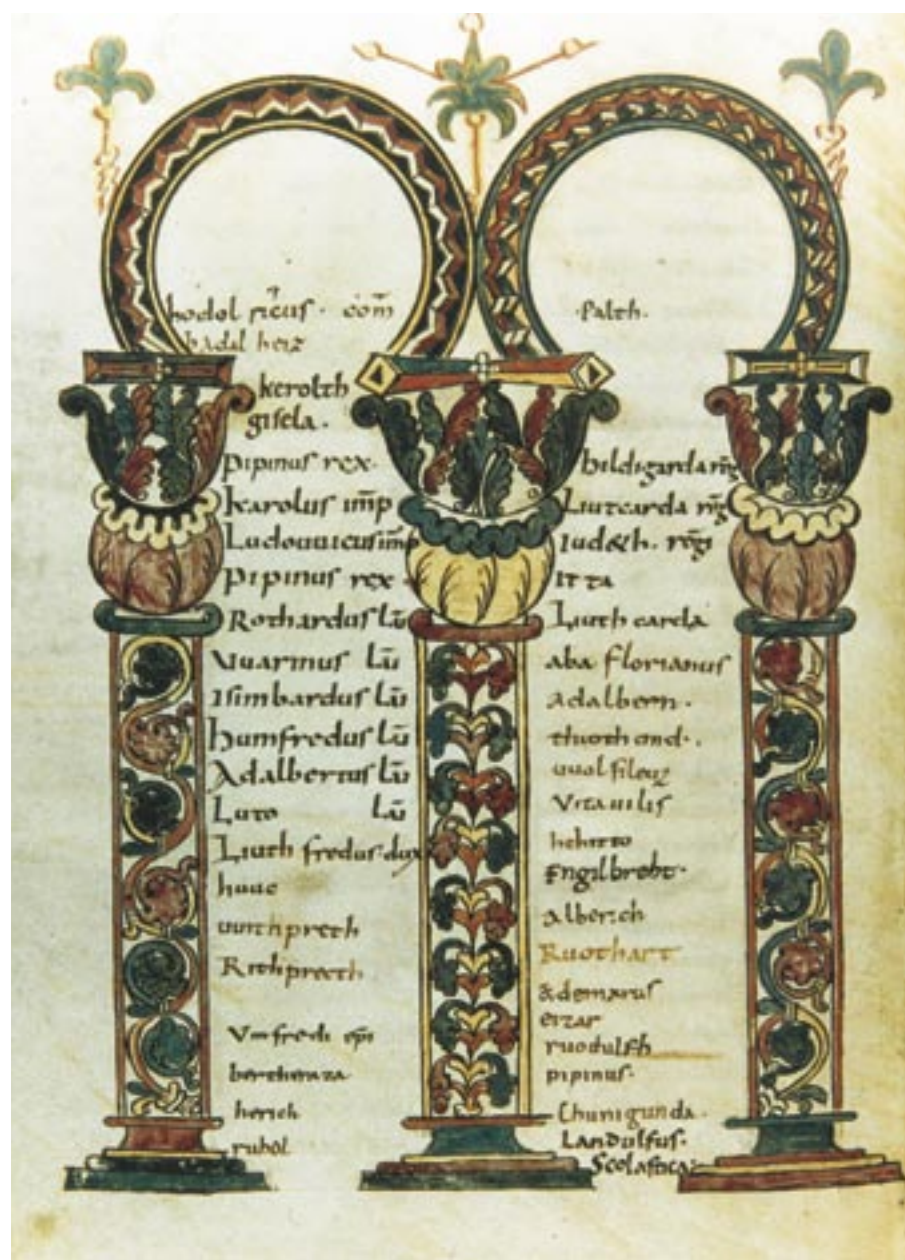 hodol ricus · com̄
hadil heiz
kerolth
gisela ·
pipinus rex ·
karolus imp̄
Ludouuicus imp̄
pipinus rex
Rothardus lāu
Vuarinus lāu
Isimbardus lāu
humfredus lāu
Adalbertus lāu
Luto lāu
Liuth fredus · dux
huuc
uuith preth
Rithpreth
Vnfredi ep̄i
herich
ruhol
· palth ·
hildigarda reḡ
Liutcarda reḡ
iud&h · reḡi
itta
Liuth carda
aba florianus
Adalbern ·
Vitauilis
hehitto
Engilbreht ·
Alberch
Ruothart
ademarus
eizar
ruodulfh
pipinus ·
Chunigunda ·
Landulfus ·
Scolastica